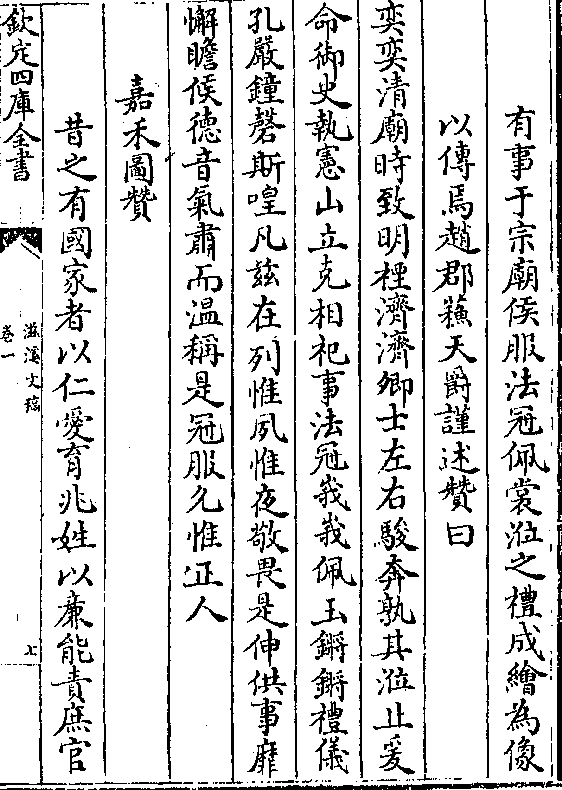 有事于宗廟侯服法冠佩裳涖之禮成繪為像
以傳焉趙郡蘓天爵謹述贊曰
奕奕清廟時致明禋濟濟卿士左右駿奔孰其涖止爰
命御史執憲山立克相祀事法冠峩峩佩玉鏘鏘禮儀
孔嚴鐘磬斯喤凡兹在列惟夙惟夜敬畏是伸供事靡
懈瞻侯德音氣肅而温稱是冠服允惟正人
嘉禾圖贊
昔之有國家者以仁愛育兆姓以廉能責庶官
欽定四庫全書
滋溪文稿
卷一
七